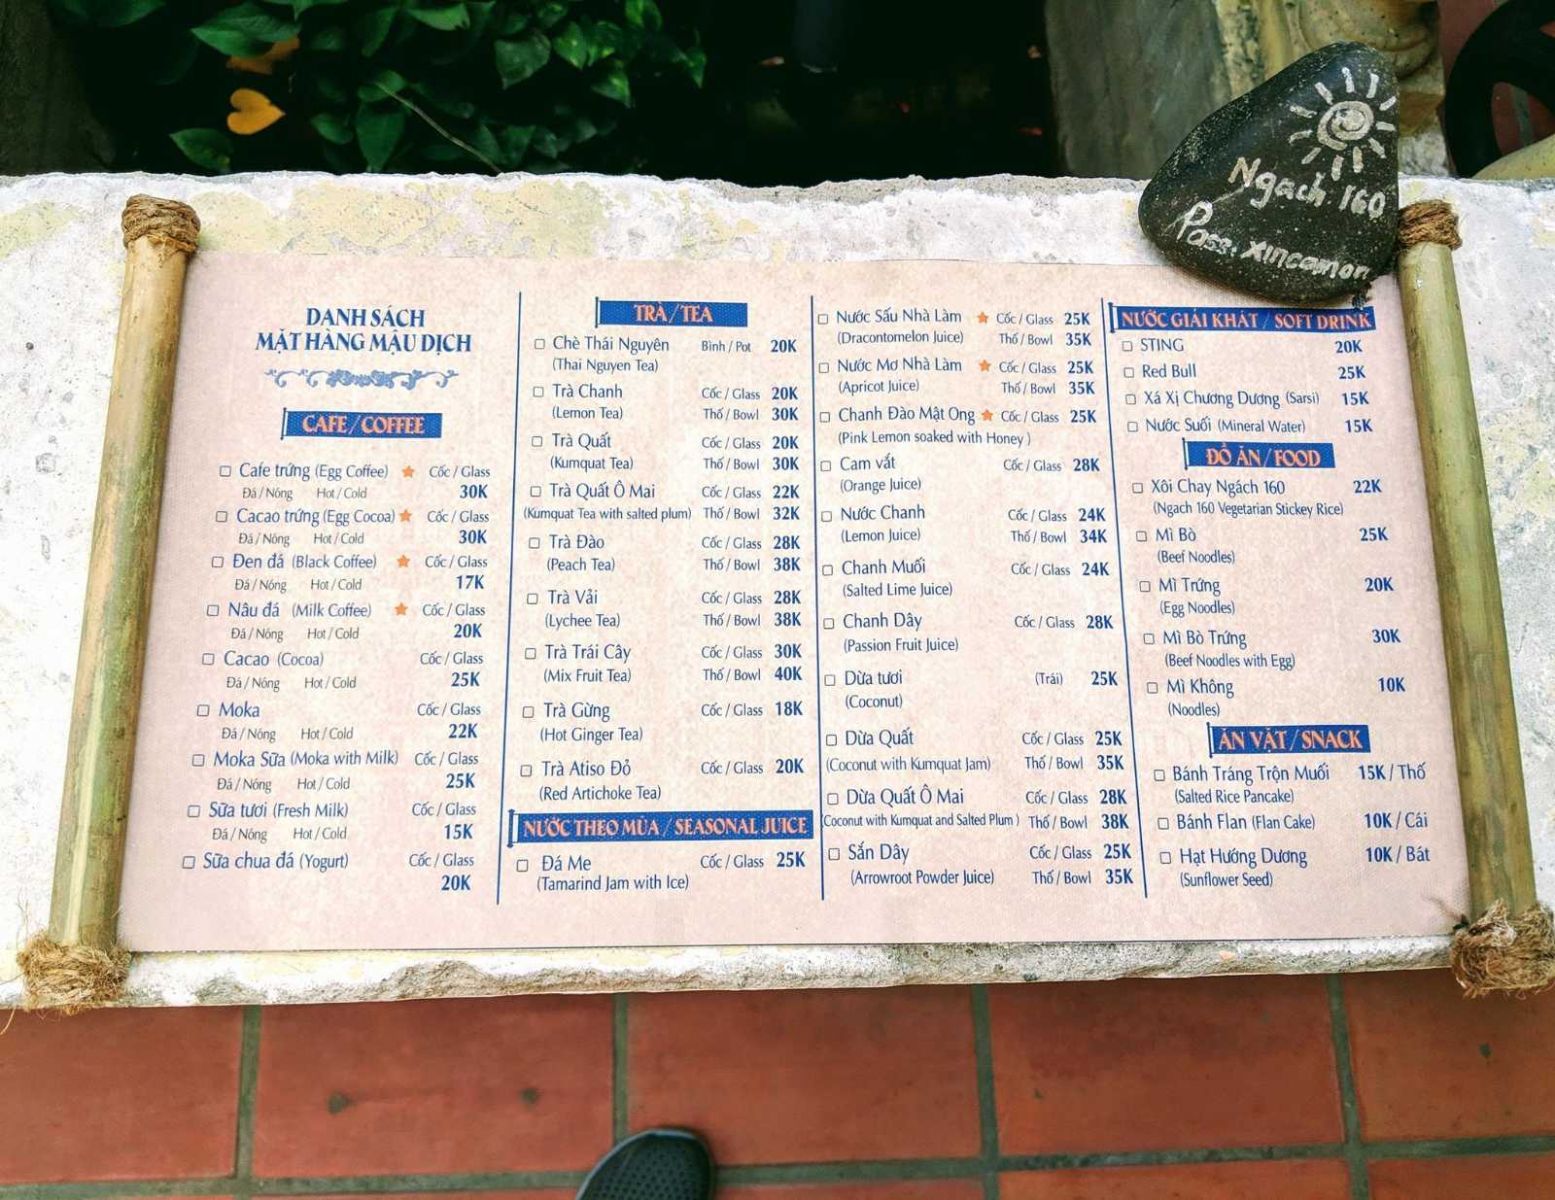 DANH SÁCH
MẶT HÀNG MẬU DỊCH
CAFE/COFFEE
Cafe trứng (Egg Coffee) Cốc / Glass
Đá / Nóng Hot / Cold 30K
Cacao trứng (Egg Cocoa) Cốc / Glass
Đá / Nóng Hot / Cold 30K
Đen đá (Black Coffee) Cốc / Glass
Đá / Nóng Hot / Cold 17K
Nâu đá (Milk Coffee) Cốc / Glass
Đá / Nóng Hot / Cold 20K
Cacao (Cocoa) Cốc / Glass
Đá / Nóng Hot / Cold 25K
Moka Cốc / Glass
Đá / Nóng Hot / Cold 22K
Moka Sữa (Moka with Milk) Cốc / Glass
Đá / Nóng Hot / Cold 25K
Sữa tươi (Fresh Milk) Cốc / Glass
Đá / Nóng Hot / Cold 15K
Sữa chua đá (Yogurt) Cốc / Glass
20K
TRÀ/TEA
Chè Thái Nguyên Bình / Pot 20K
(Thai Nguyen Tea)
Trà Chanh Cốc / Glass 20K
(Lemon Tea) Thố / Bowl 30K
Trà Quất Cốc / Glass 20K
(Kumquat Tea) Thố / Bowl 30K
Trà Quất Ô Mai Cốc / Glass 22K
(Kumquat Tea with salted plum) Thố / Bowl 32K
Trà Đào Cốc / Glass 28K
(Peach Tea) Thố / Bowl 38K
Trà Vải Cốc / Glass 28K
(Lychee Tea) Thố / Bowl 38K
Trà Trái Cây Cốc / Glass 30K
(Mix Fruit Tea) Thố / Bowl 40K
Trà Gừng Cốc / Glass 18K
(Hot Ginger Tea)
Trà Atiso Đỏ Cốc / Glass 20K
(Red Artichoke Tea)
NƯỚC THEO MÙA / SEASONAL JUICE
Đá Me Cốc / Glass 25K
(Tamarind Jam with Ice)
Nước Sấu Nhà Làm Cốc / Glass 25K
(Dracontomelon Juice) Thố / Bowl 35K
Nước Mơ Nhà Làm Cốc / Glass 25K
(Apricot Juice) Thố / Bowl 35K
Chanh Đào Mật Ong Cốc / Glass 25K
(Pink Lemon soaked with Honey )
Cam vắt Cốc / Glass 28K
(Orange Juice)
Nước Chanh Cốc / Glass 24K
(Lemon Juice) Thố / Bowl 34K
Chanh Muối Cốc / Glass 24K
(Salted Lime Juice)
Chanh Dây Cốc / Glass 28K
(Passion Fruit Juice)
Dừa tươi (Trái) 25K
(Coconut)
Dừa Quất Cốc / Glass 25K
(Coconut with Kumquat Jam) Thố / Bowl 35K
Dừa Quất Ô Mai Cốc / Glass 28K
(Coconut with Kumquat and Salted Plum ) Thố / Bowl 38K
Sắn Dây Cốc / Glass 25K
(Arrowroot Powder Juice) Thố / Bowl 35K
Ngach 160
Pass: xincamon
NƯỚC GIẢI KHÁT / SOFT DRINK
STING 20K
Red Bull 25K
Xá Xị Chương Dương (Sarsi) 15K
Nước Suối (Mineral Water) 15K
ĐỒ ĂN/FOOD
Xôi Chay Ngách 160 22K
(Ngach 160 Vegetarian Stickey Rice)
Mì Bò 25K
(Beef Noodles)
Mì Trứng 20K
(Egg Noodles)
Mì Bò Trứng 30K
(Beef Noodles with Egg)
Mì Không 10K
(Noodles)
ĂN VẶT/SNACK
Bánh Tráng Trộn Muối 15K / Thố
(Salted Rice Pancake)
Bánh Flan (Flan Cake) 10K / Cái
Hạt Hướng Dương 10K / Bát
(Sunflower Seed)